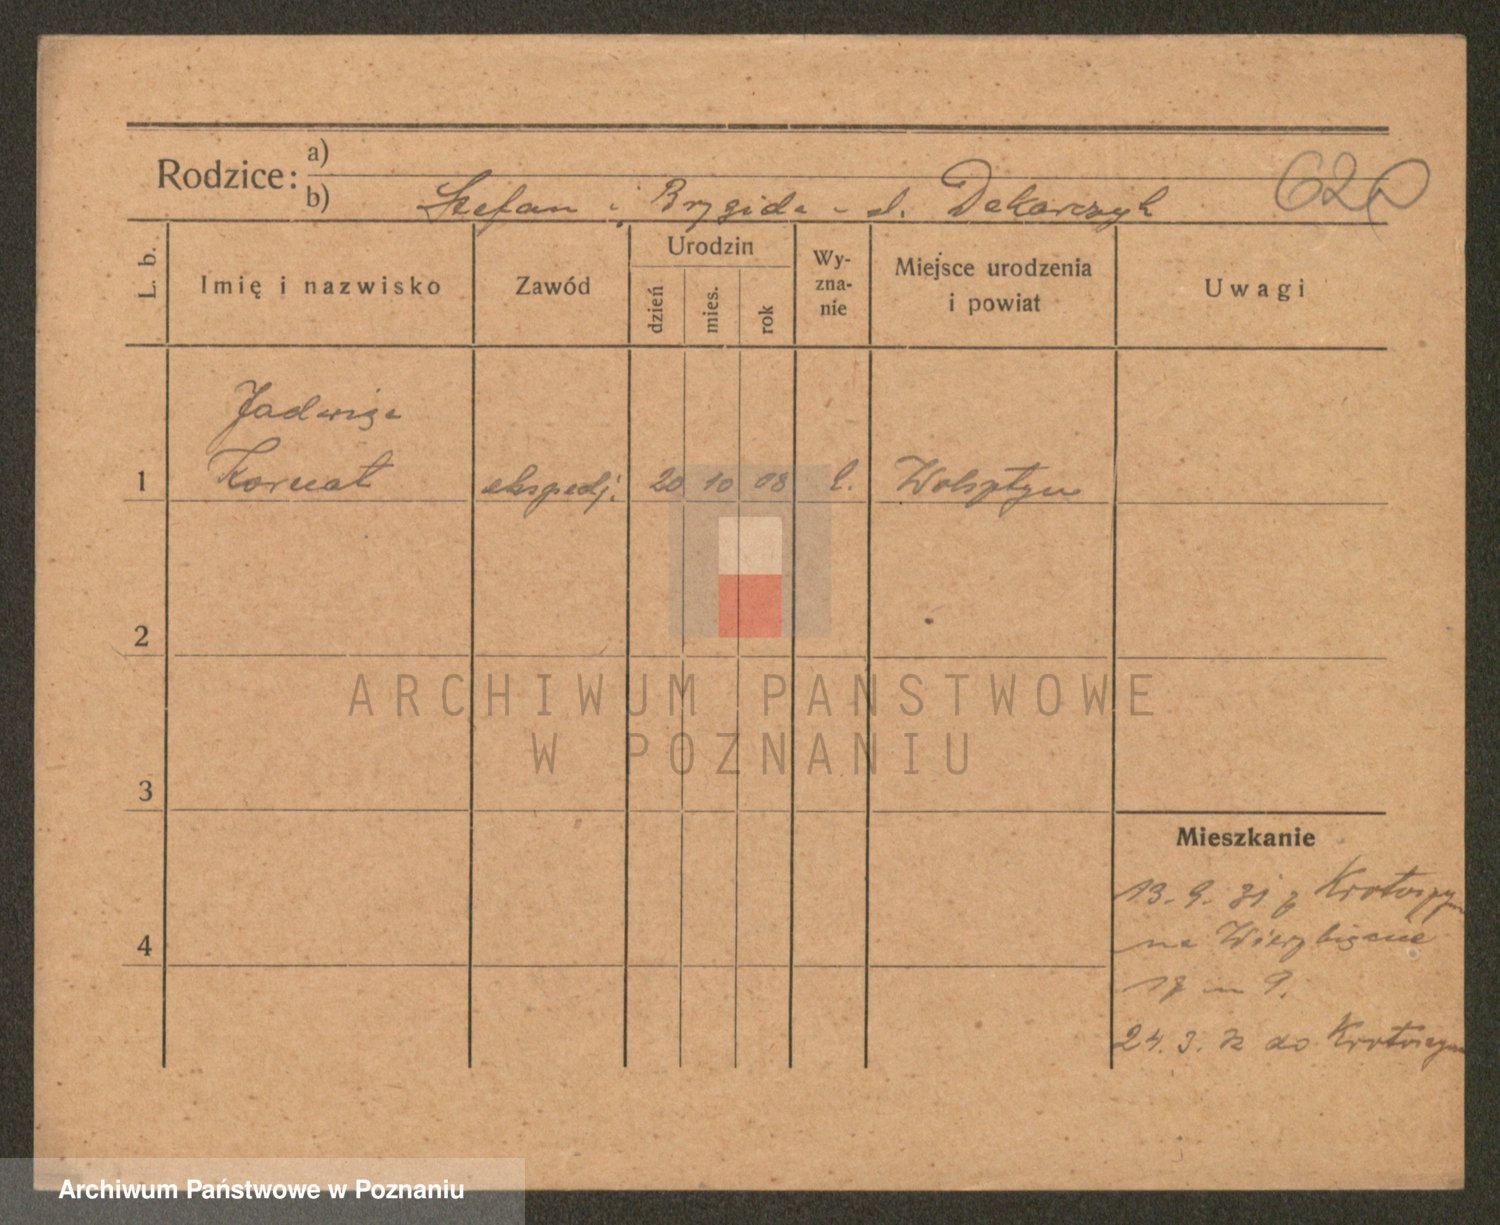 Rodzice: a)
b) Stefan i Brygida - d. Dekarczyk
620
L. b. Imię i nazwisko Zawód Urodzin dzień mies. rok Wy-zna-nie Miejsce urodzenia i powiat Uwagi
Jadwiga
1 Kornat ekspedj. 20 10 08 k. Wolsztyn
2
ARCHIWUM PAŃSTWOWE
W POZNANIU
3
Mieszkanie
13. 9. 31 z Krotoszyn
na Wierzbięcie
4
17 m 9.
24. 3. 32 do Krotoszyn
Archiwum Państwowe w Poznaniu